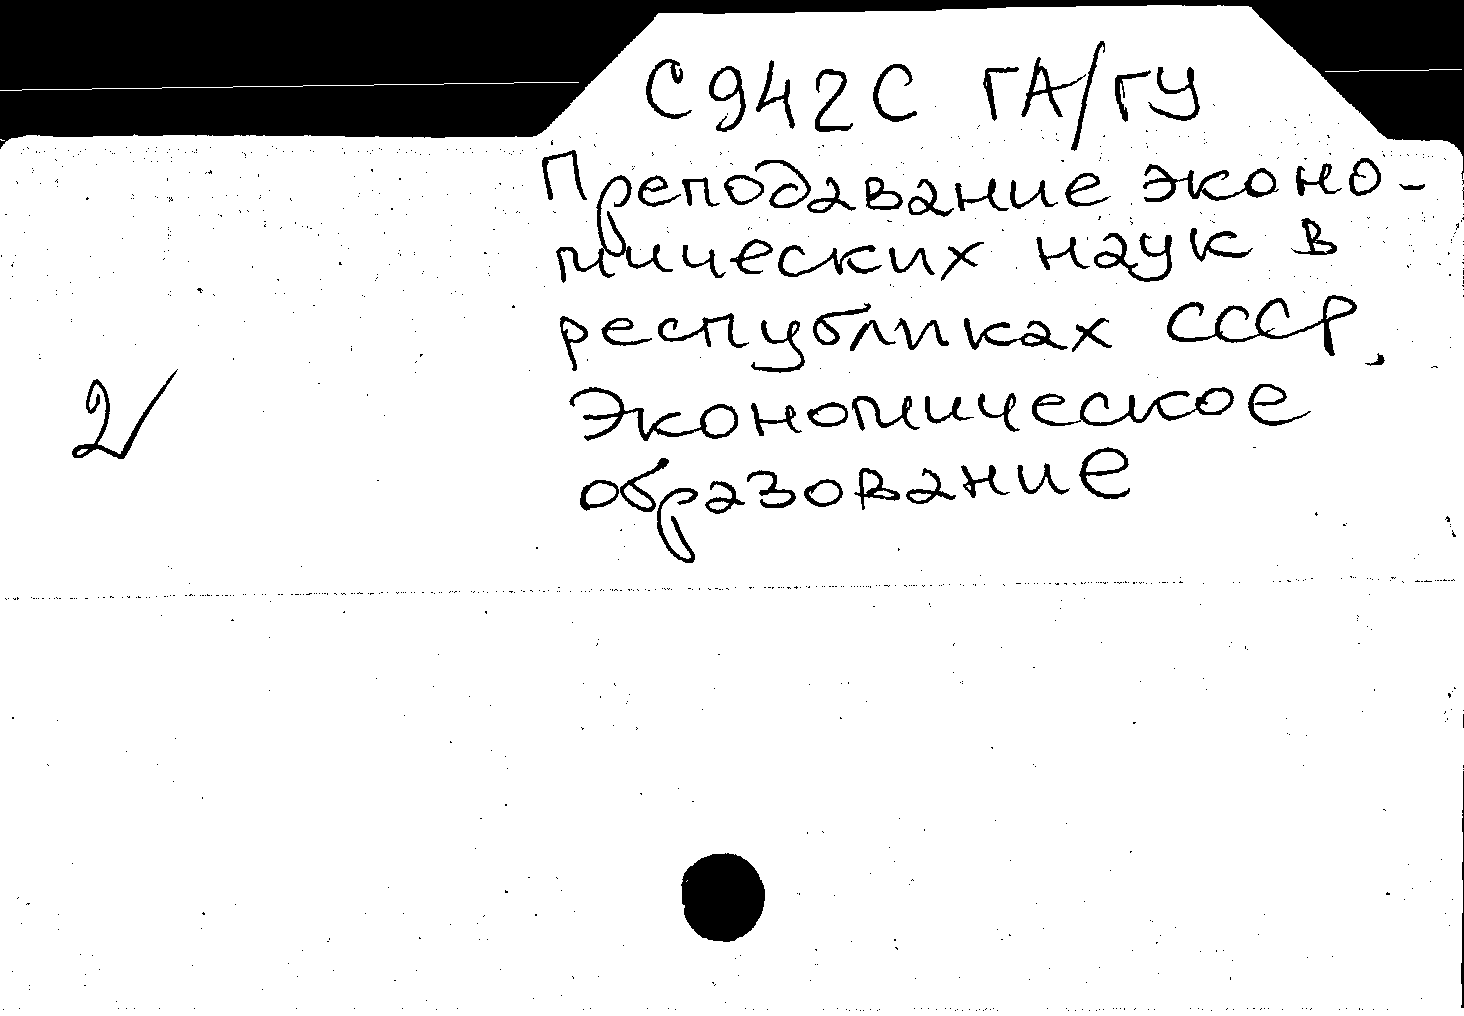 С942С ГА/ГУ
Преподавание эконо-
мических наук в
республиках СССР.
Экономическое
образование
2✓